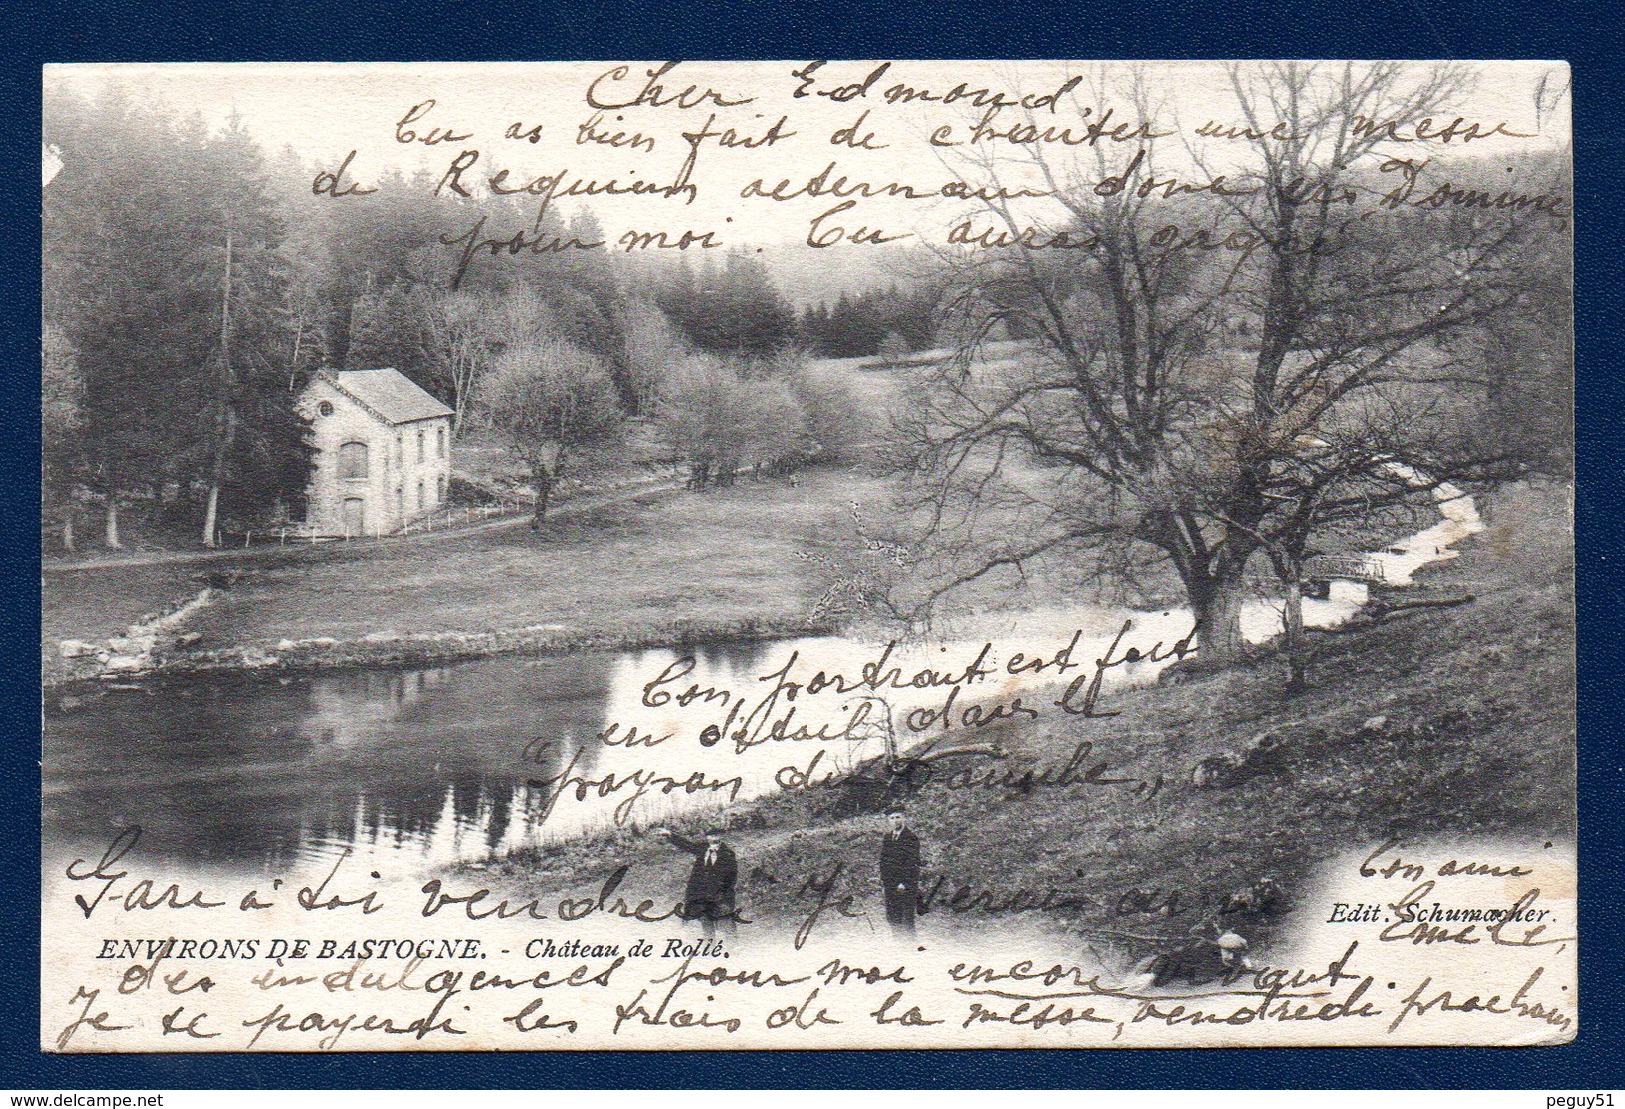 Cher Edmond,
Tu as bien fait de chanter une messe
de Requiem aeternam dona eis Domine,
pour moi. Tu auras gagné
Ton portrait est fait
en détail dans le
"paysan du Danube"
Ton ami
Gare à toi vendredi Je serai armé
Edit. Schumacher.
Emile,
ENVIRONS DE BASTOGNE. - Château de Rollé.
des indulgences pour moi encore vivant
Je te payerai les frais de la messe, vendredi prochain
delcampe.net
peguy51